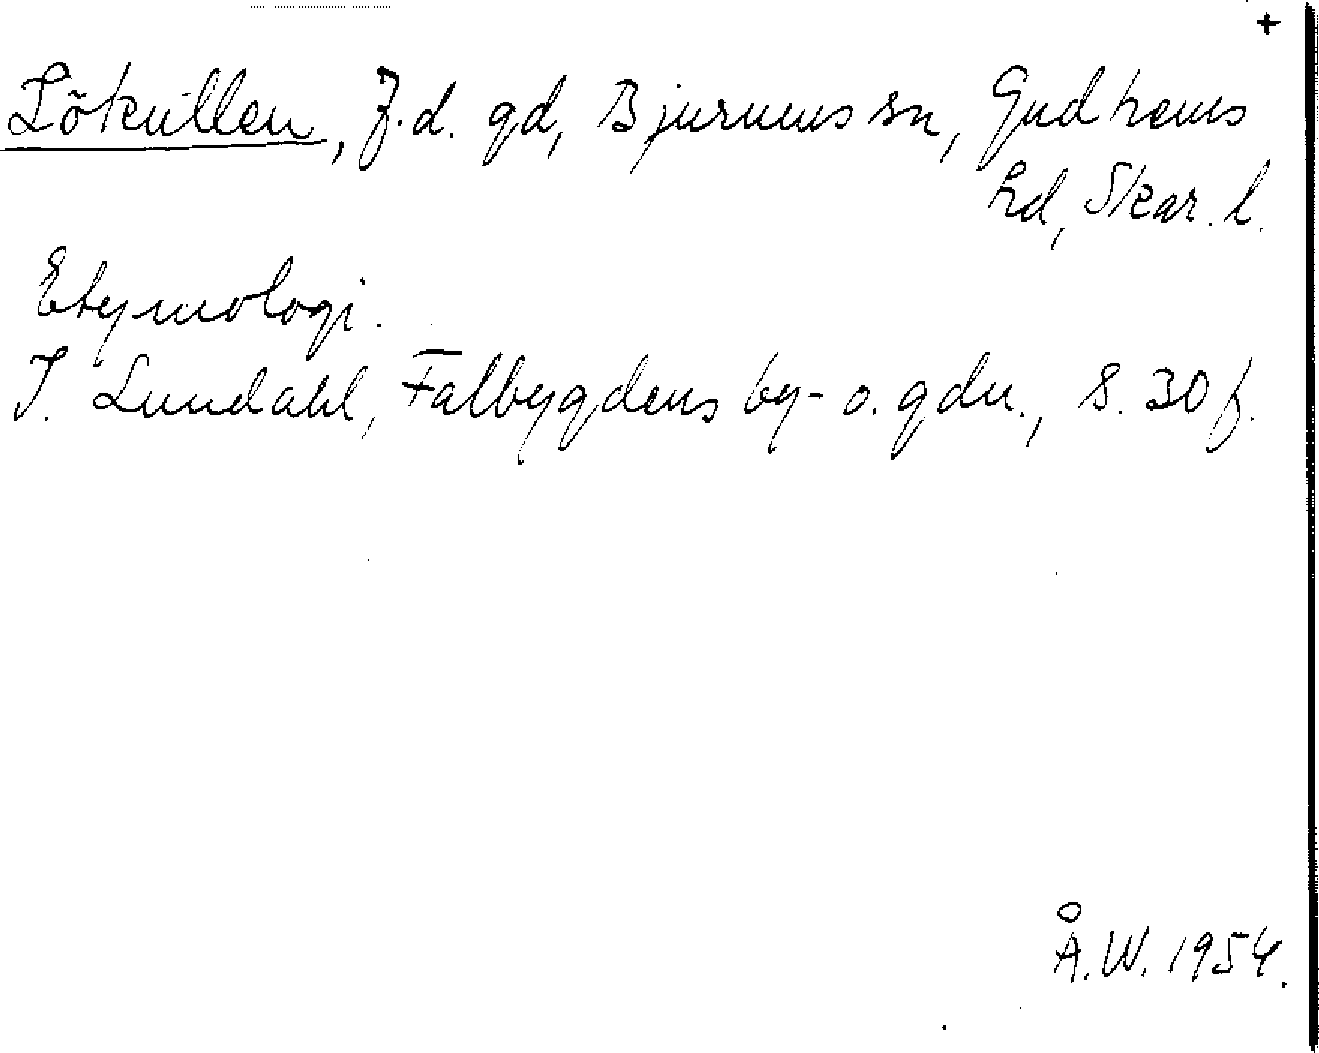 +
Lökullen, f.d. gd, Bjurums sn, Gudhems
hd, Skar. l.
Etymologi.
I. Lundahl, Falbygdens by- o. gdn., s. 30 f.
Å.W. 1954.